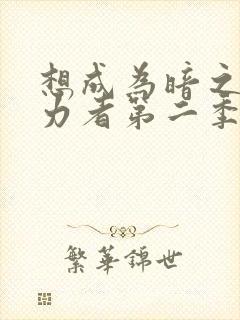 想成为暗之
力者第二季
繁華錦世